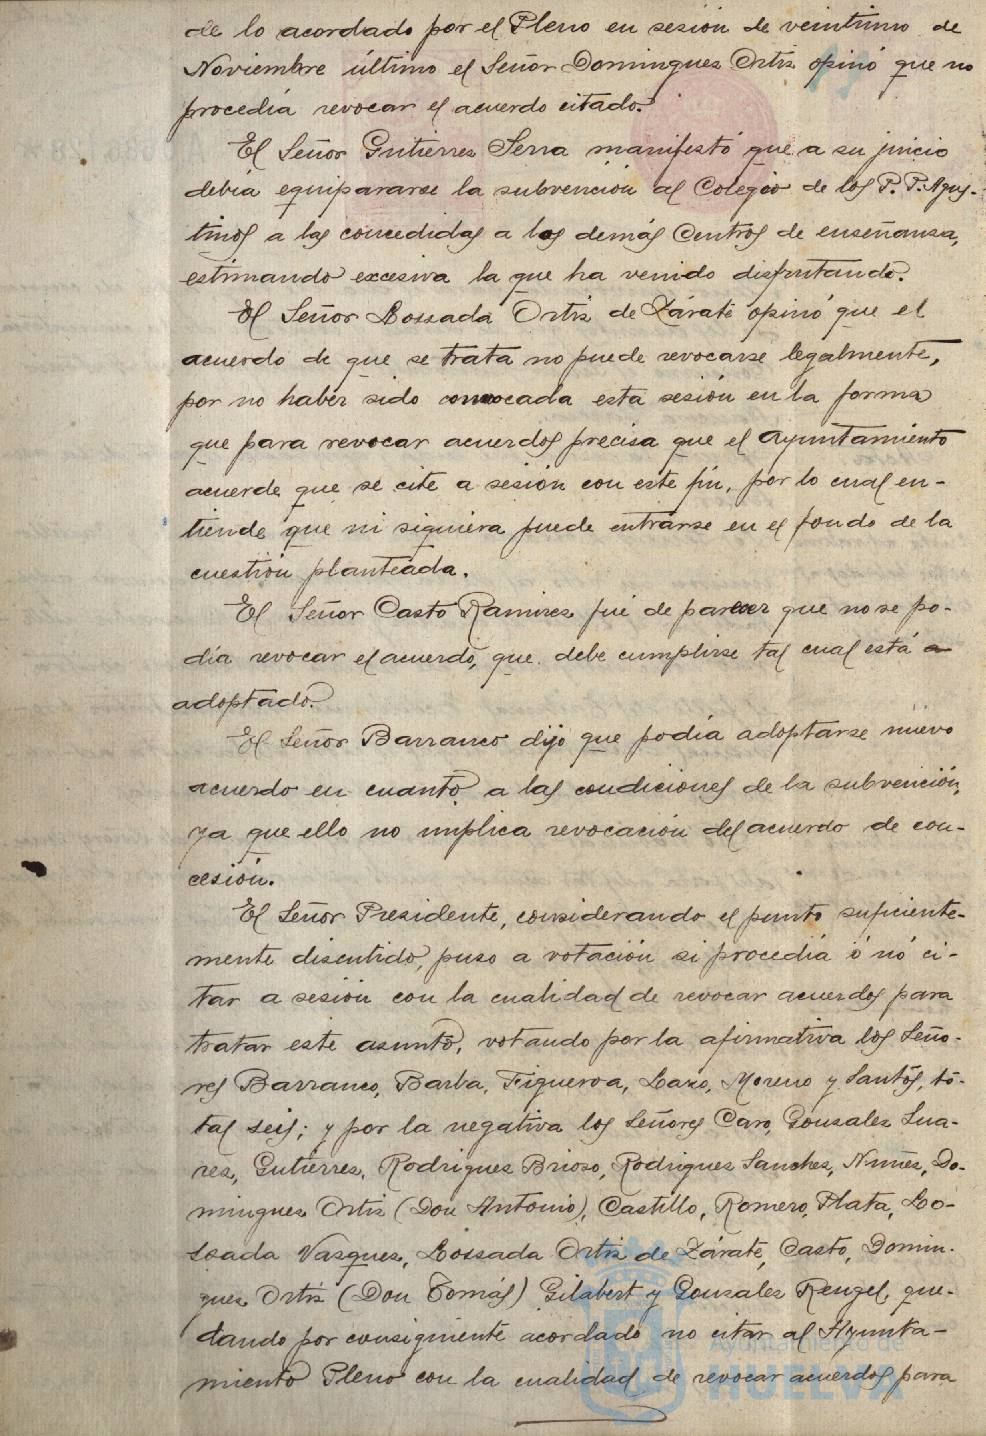 de lo acordado por el Pleno en sesión de veintiuno de
Noviembre último el Señor Domingues Ortiz opinó que no
procedía revocar el acuerdo citado.
El Señor Gutierres Serra manifestó que a su juicio
debía equipararse la subvención al Colegio de los P. P. Agus-
tinos a las concedidas a los demás Centros de enseñansa,
estimando excesiva la que ha venido disfrutando.
El Señor Lossada Ortiz de Zárate opinó que el
acuerdo de que se trata no puede revocarse legalmente,
por no haber sido convocada esta sesión en la forma
que para revocar acuerdos precisa que el Ayuntamiento
acuerde que se cite a sesión con este fin, por lo cual en-
tiende que ni siquiera puede entrarse en el fondo de la
cuestión planteada.
El Señor Casto Ramires fué de parecer que no se po-
día revocar el acuerdo, que debe cumplirse tal cual está a
adoptado.
El Señor Barranco dijo que podía adoptarse nuevo
acuerdo en cuanto a las condiciones de la subvención,
ya que ello no implica revocación del acuerdo de con-
cesión.
El Señor Presidente, considerando el punto suficiente-
mente discutido, puso a votación si procedía ó nó ci-
tar a sesión con la cualidad de revocar acuerdos para
tratar este asunto, votando por la afirmativa los Seño-
res Barranco, Barba, Figueroa, Lazo, Moreno y Santos, to-
tal seis; y por la negativa los Señores Caro, Gonsales Sua-
res, Gutierres, Rodrigues Brioso, Rodrigues Sanches, Nuñes, Do-
mingues Ortiz (Don Antonio), Castillo, Romero, Plata, Lo-
ssada Vasques, Lossada Ortiz de Zárate, Casto, Domin-
gues Ortiz (Don Tomás) Gilabert y Gonsales Rengel, que-
dando por consiguiente acordado no citar al Ayunta-
miento Pleno con la cualidad de revocar acuerdos para
Ayuntamiento de
HUELVA